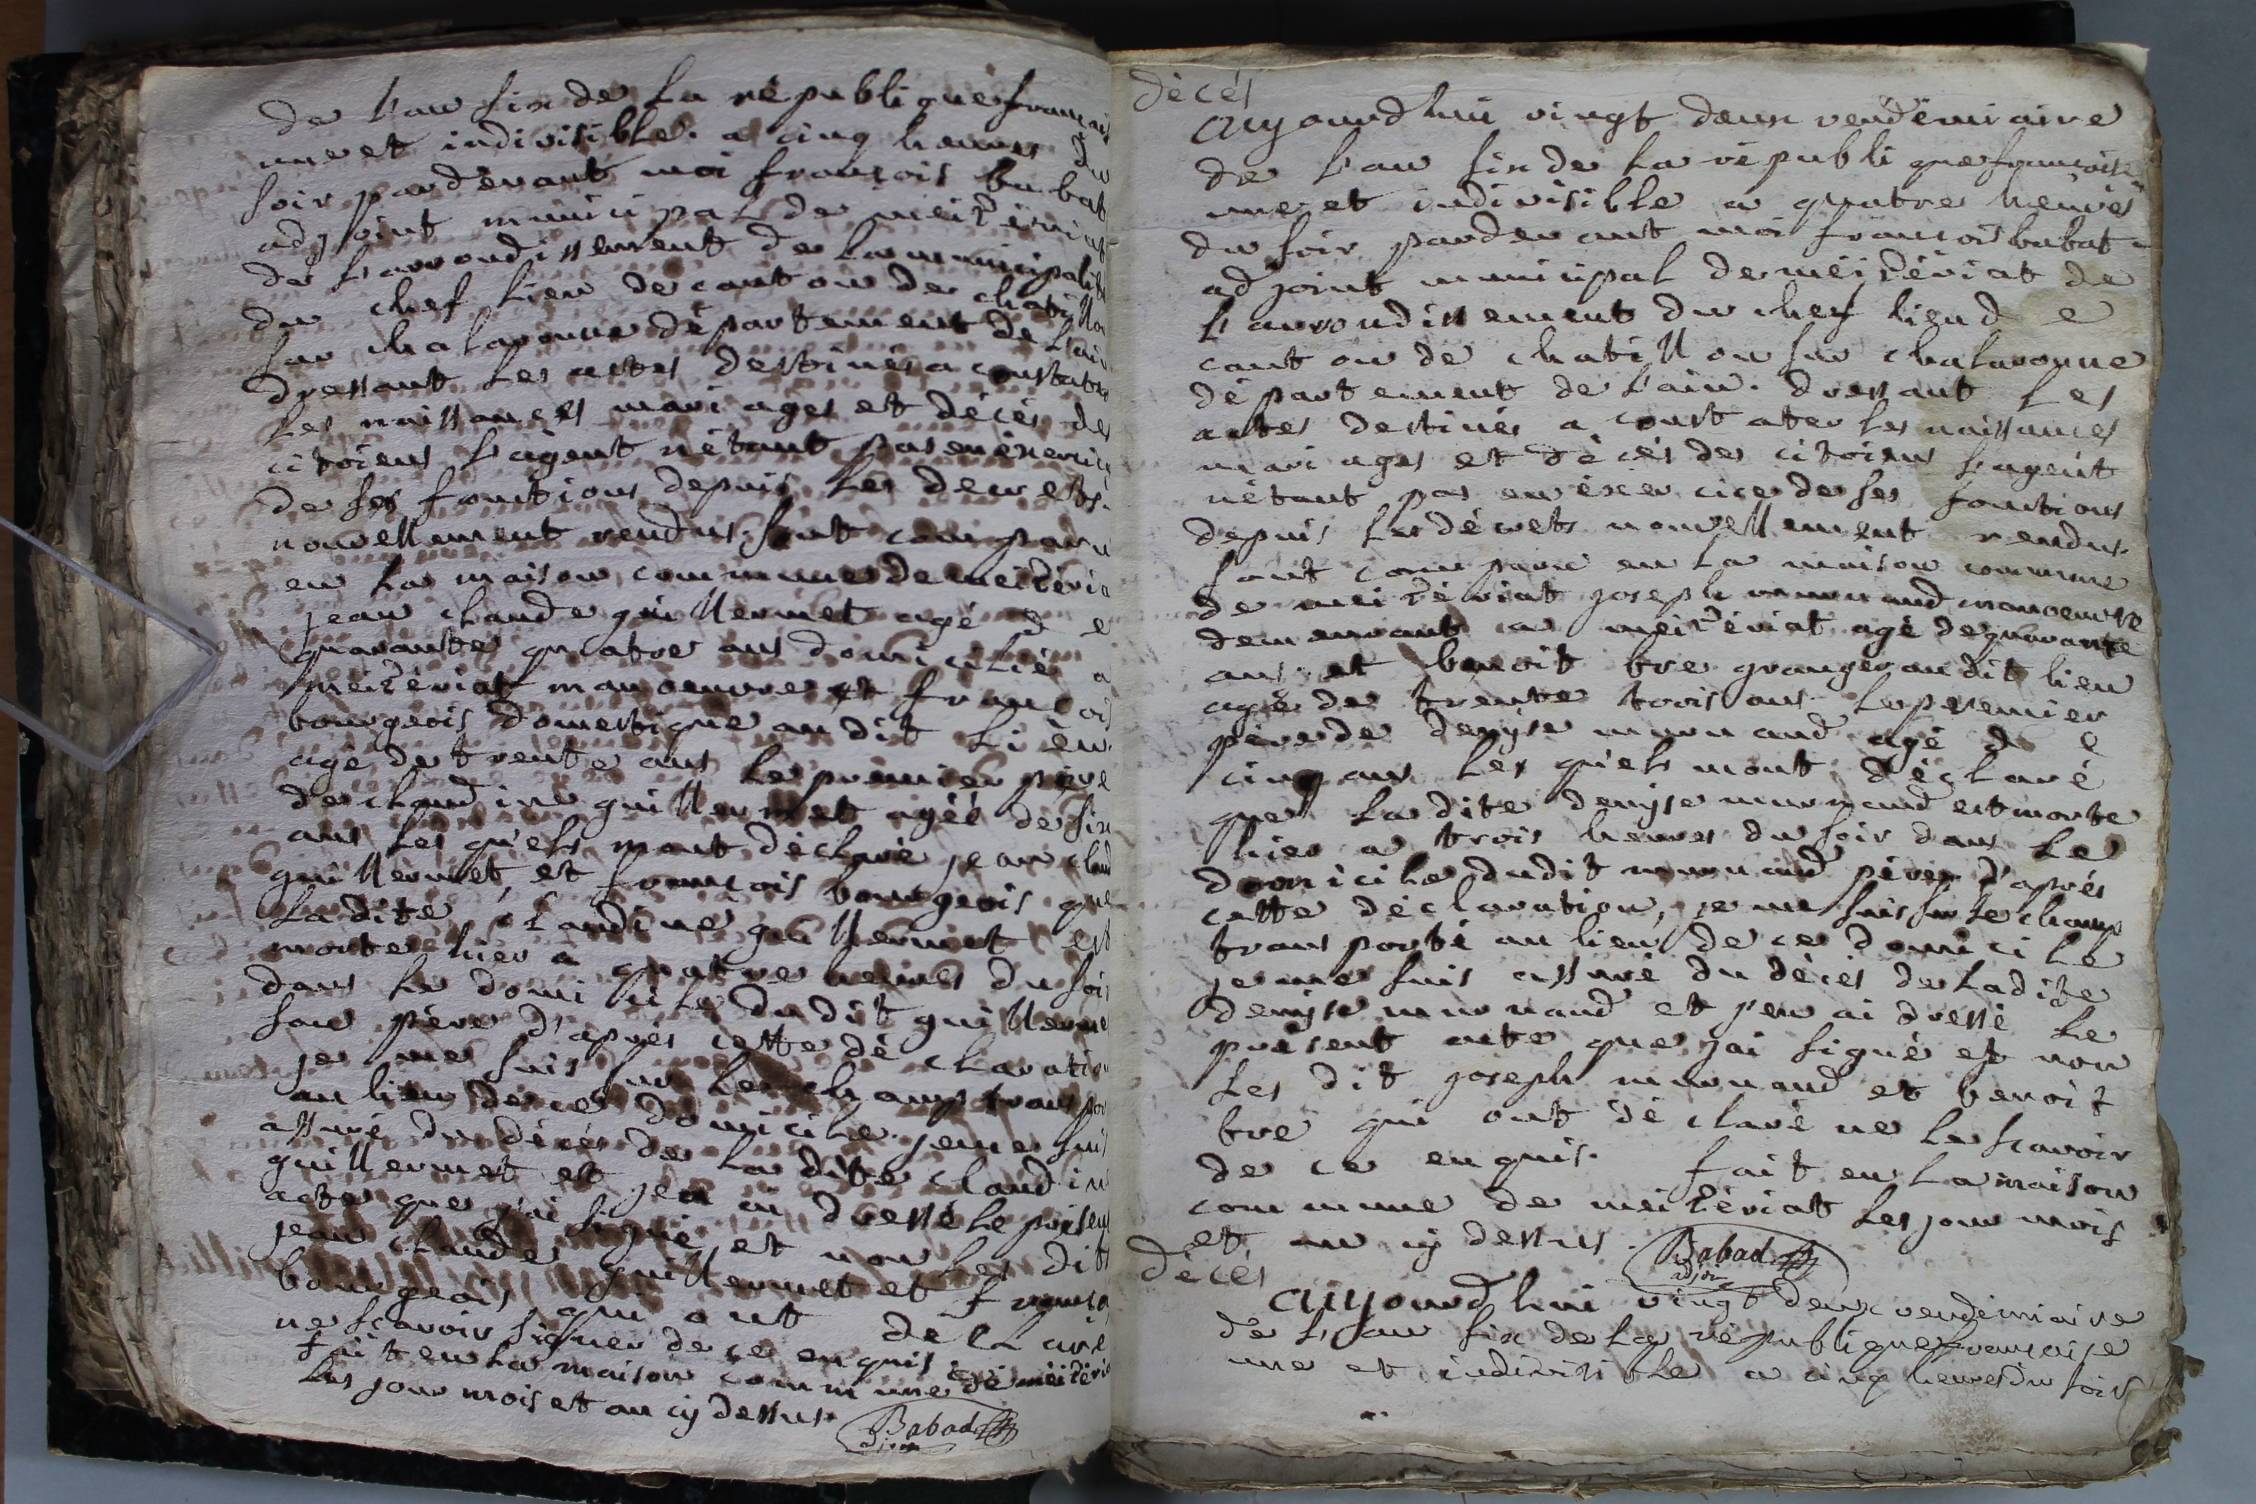 de l'an six de la république françai
une et indivisible. a cinq heures du
soir pardevant moi françois babat
adjoint municipal de meizériat
de l'arrondissement de la municipalité
du chef lieu de canton de chatillon
sur chalaronne département de l'ain
dressant les actes destinés a constater
les naissances mariages et décés des
citoiens l'agent n'étant pas en éxercice
de ses fonctions depuis les decrets.
nouvellement rendus. sont comparu
en la maison commune de meizéria
jean claude guillermet agé d e
quarante quatre ans domicilié a
meizériat manoeuvre et francois
bourgeois domestique au dit lieu
agé de trente ans le premier père
de claudine guillermet agée de six
ans les quels mont déclaré jean claud
guillermet et francois bourgeois que
la dite claudine guillermet est
morte hier a quatre heures du soir
dans le domicile du dit guillerme
son père d'aprés cette déclaration
je me suis sur le champ transpor
au lieu de ce domicile. je me suis
assuré du décés de la dite claudin
guillermet et jen ai dressé le présent
acte que j'ai signé et non les dits
jean claude guillermet et françoi
bourgeois qui ont déclaré
ne scavoir signer de ce enquis
fait en la maison commune de meizéria
les jour mois et an cy dessus.
Babad
adjoin
décés
aujourd hui vingt deux vendémiaire
de l'an six de la république françoise
une et indivisible a quatre heures
du soir pardevant moi francois babat
adjoint municipal de meizériat de
l'arrondissement du chef lieu d e
canton de chatillon sur chalaronne
département de l'ain. dressant les
actes destinés a constater les naissances
mariages et décés des citoiens l'agent
nétant pas en éxercice de ses fonctions
depuis les décrets nouvellement rendus.
sont comparu en la maison commune
de meizériat joseph murnand manoeuvre
demeurant a meizériat agé de quarante
ans. et benoit bre granger au dit lieu
agé de trente trois ans. le premier
père de denyse murnand agé d e
cinq ans les quels mont déclaré
que la dite denyse murnand est morte
hier a trois heures du soir dans le
domicile dudit murnand père d'aprés
cette déclaration, je me suis sur le champ
transporté au lieu de ce domicile
je me suis assuré du décés de ladite
denyse murnand et jen ai dressé le
présent acte que jai signé et non
les dit joseph murnand et benoit
bre qui ont déclaré ne le scavoir
de ce enquis. fait en la maison
commune de meizériat les jour mois
et an cy dessus.
Babad
adjoin
décés
aujourd hui vingt deux vendémiaire
de l'an six de la république française
une et indivisible a cinq heures du soir